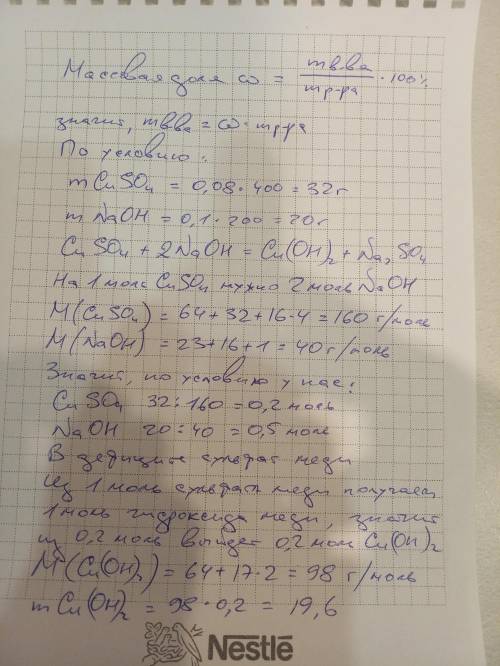 Массовая доля ω = mв-ва / mр-ра · 100%
значит, mв-ва = ω · mр-ра
По условию:
m CuSO₄ = 0,08 · 400 = 32 г
m NaOH = 0,1 · 200 = 20 г
CuSO₄ + 2NaOH = Cu(OH)₂ + Na₂SO₄
На 1 моль CuSO₄ нужно 2 моль NaOH
M(CuSO₄) = 64 + 32 + 16 · 4 = 160 г/моль
M(NaOH) = 23 + 16 + 1 = 40 г/моль
Значит, по условию у нас:
CuSO₄ 32 : 160 = 0,2 моль
NaOH 20 ÷ 40 = 0,5 моль
В дефиците сульфат меди
Из 1 моль сульфата меди получаем
1 моль гидроксида меди, значит
из 0,2 моль выйдет 0,2 моль Cu(OH)₂
M(Cu(OH)₂) = 64 + 17 · 2 = 98 г/моль
m Cu(OH)₂ = 98 · 0,2 = 19,6
Nestlé